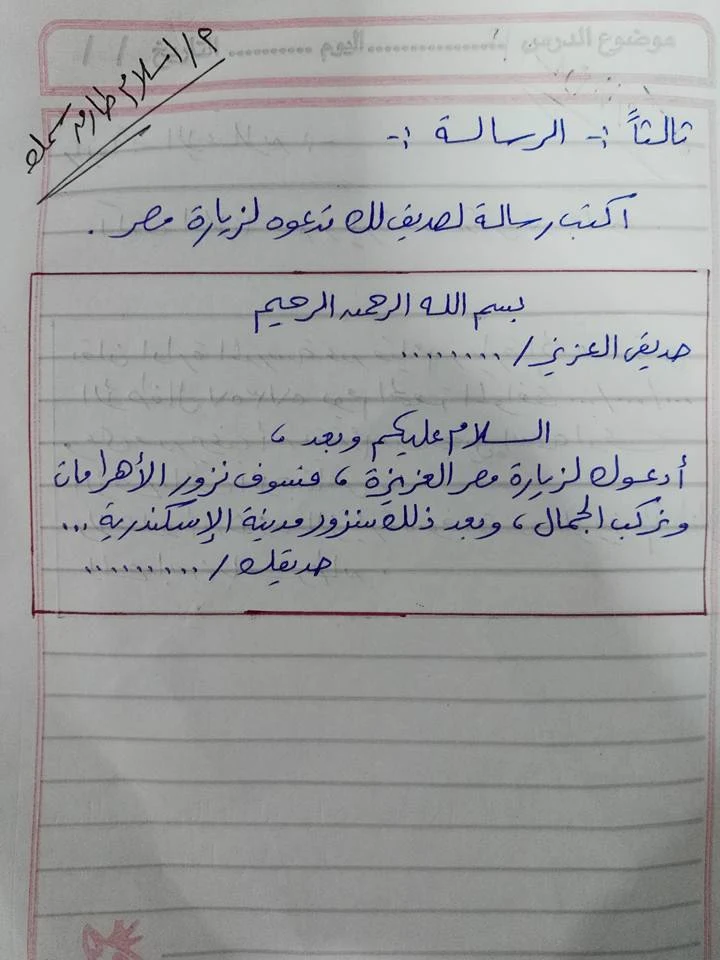 موضوع الدرس / .................. اليوم ........... التاريخ / /
م/ اسلام طارق
ثالثاً :- الرسالة :-
اكتب رسالة لصديق لك تدعوه لزيارة مصر .
بسم الله الرحمن الرحيم
صديقي العزيز / ........
السلام عليكم وبعد ،
أدعوك لزيارة مصر العزيزة ، فسوف نزور الأهرامات
ونركب الجمال ، وبعد ذلك سنزور مدينة الإسكندرية ...
صديقك / ..........